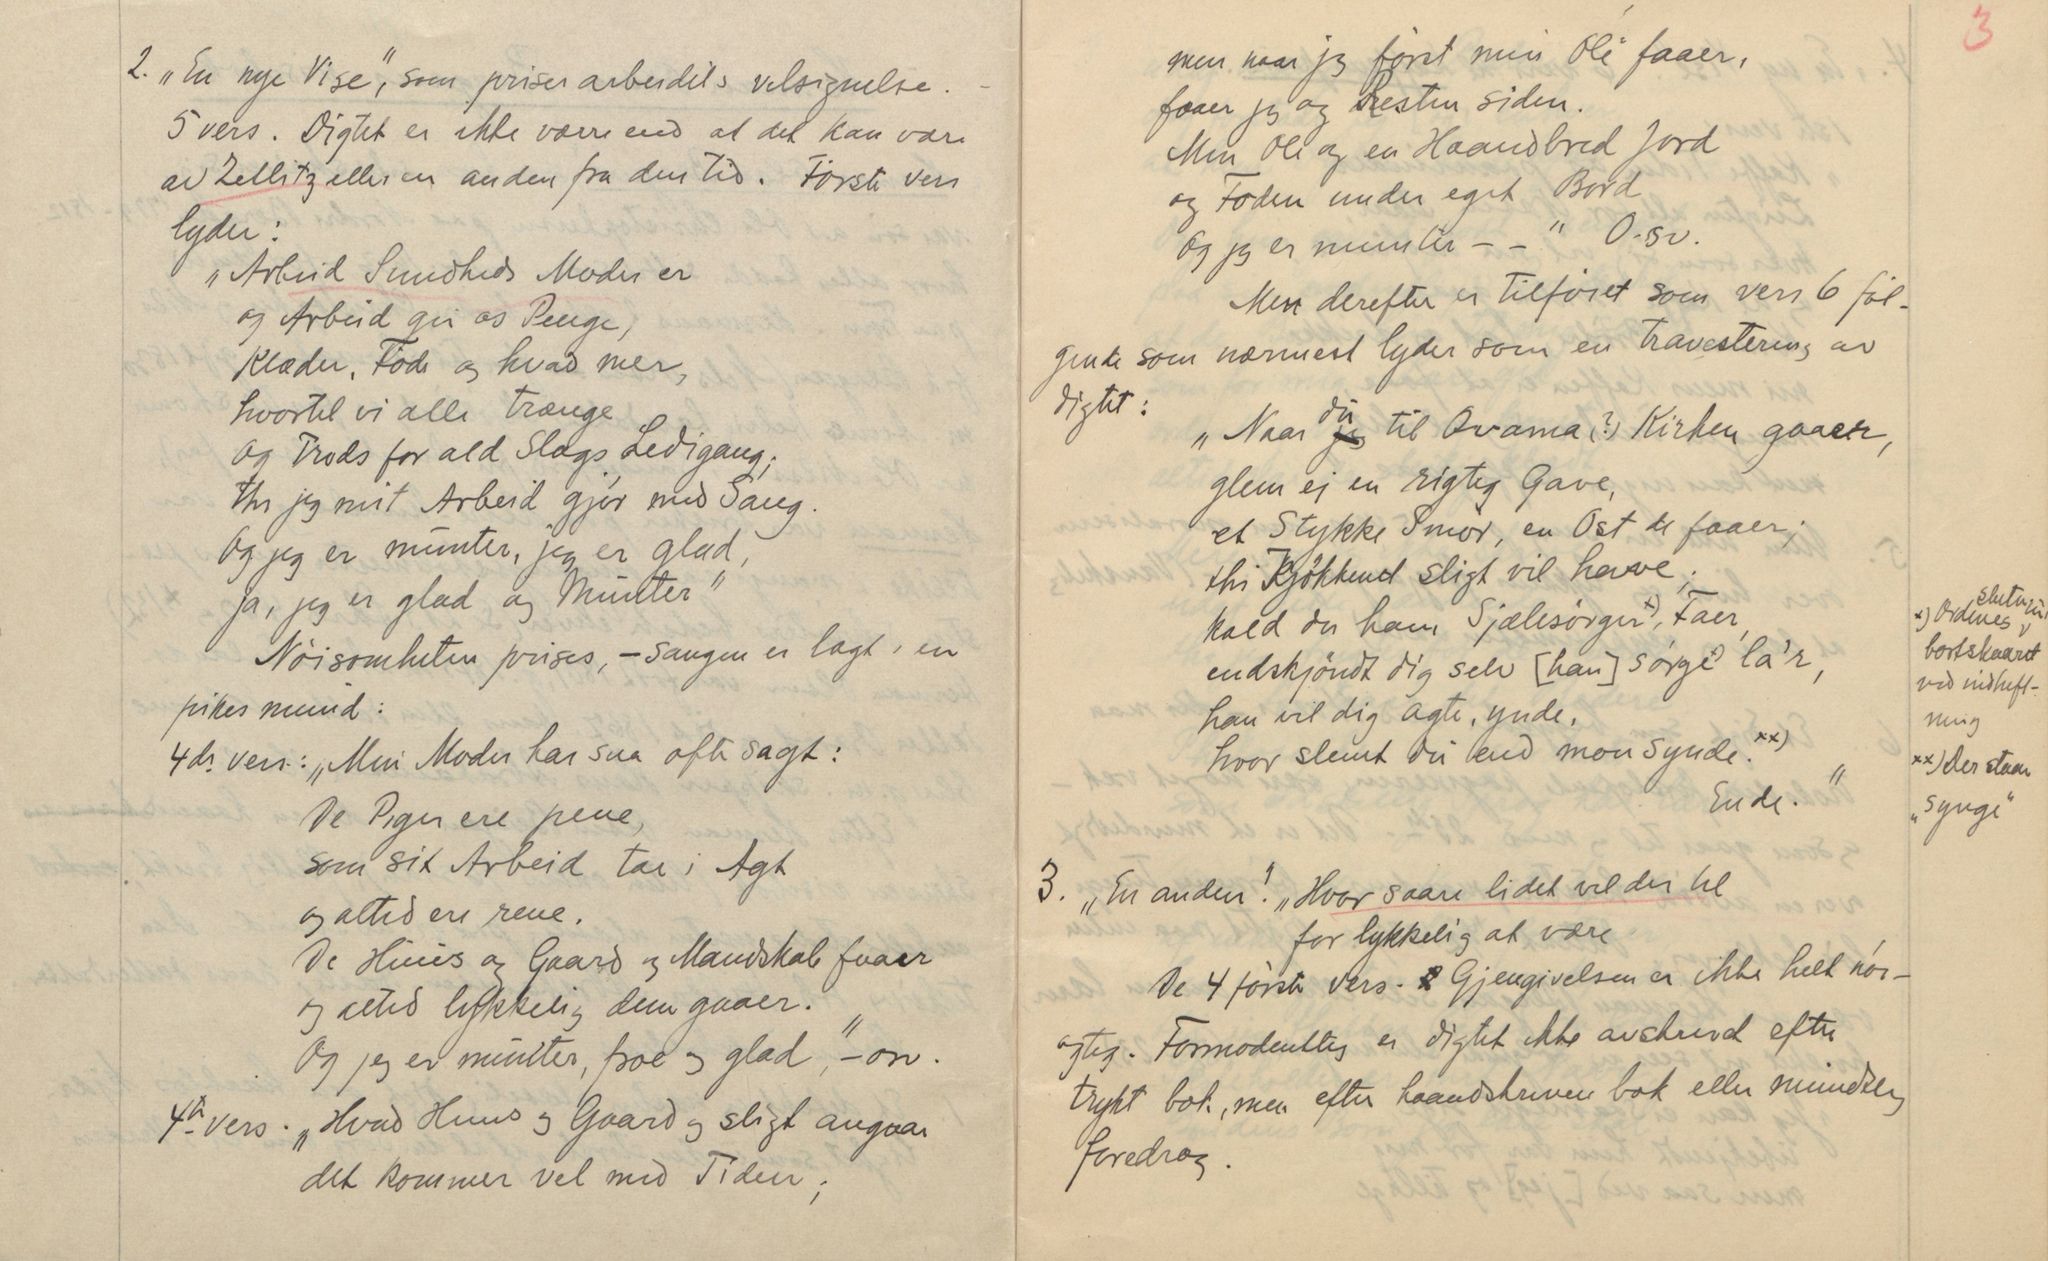 2. „En nye Vise", som priser arbeidets velsignelse. -
5 vers. Digtet er ikke værre end at det kan være
av Zetlitz eller en anden fra den tid. Förste vers
lyder:
„Arbeid Sundheds Moder er
og Arbeid gir os Penge,
Klæder, Föde og hvad mer,
hvortil vi alle trænge
Og Trods for ald Slags Ledigang;
thi jeg mit Arbeid gjör med Sang.
Og jeg er munter, jeg er glad,
ja, jeg er glad og Munter"
Nöisomheten prises, – sangen er lagt i en
pikes mund:
4de vers: „Min Moder har saa ofte sagt:
De Piger ere pene,
som sit Arbeid tar i Agt
og altid ere rene.
De Huus og Gaard og Mandskab faaer
og altid lykkelig dem gaaer.
Og jeg er munter, froe og glad," – osv.
4te vers. „Hvad Huus og Gaard og sligt angaar
det kommer vel med Tiden;
3
men naar jeg först min Ole faaer,
faaer jeg og Resten siden.
Min Ole og en Haandbred Jord
og Foden under eget Bord
Og jeg er munter – – " O.sv.
Men derefter er tilföiet som vers 6 föl-
gende som nærmest lyder som en travestering av
digtet:
„Naar du jeg til Ovama (?) Kirken gaaer,
glem ej en rigtig Gave,
et Stykke Smör, en Ost de faaer;
thi Kjökkenet sligt vil have;
kald du ham Sjælesörger x), Faer,
endskjöndt dig selv [han] sörge x) la'r,
han vil dig agte, ynde,
hvor slemt du end mon synde. xx)
Ende. "
x) Ordenes slutning
bortskaaret
ved indheft-
ning
xx) der staar
„synge"
3. „En anden". „Hvor saare lidet vil der til
for lykkelig at være
De 4 förste vers. Gjengivelsen er ikke helt nöi-
agtig. Formodentlig er digtet ikke avskrevet efter
trykt bok, men efter haandskreven bok eller mundtlig
foredrag.